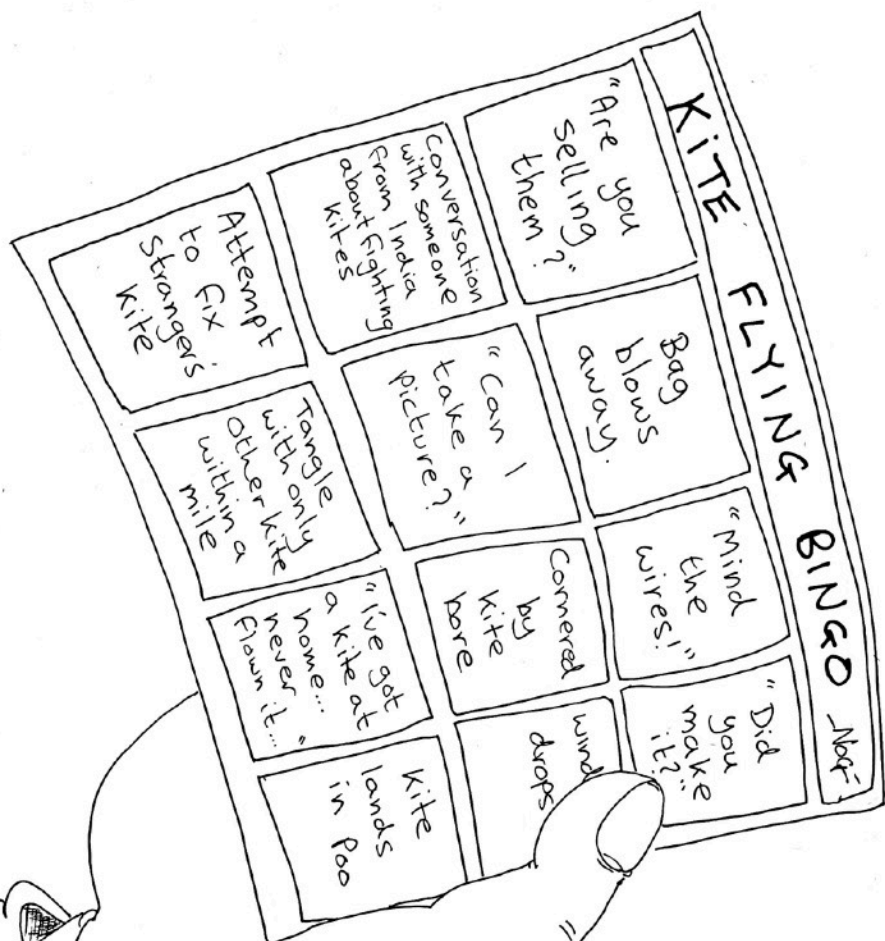 KiTE FLYING BINGO
"Are you
selling
them?"
Bag
blows
away.
"Mind
the
wires!"
"Did
you
make
it?"
Conversation
with someone
from India
about fighting
kites
"Can I
take a
picture?"
Cornered
by
kite
bore
wind
drops
Attempt
to fix
strangers
kite
Tangle
with only
other kite
within a
mile
"I've got
a kite at
home...
never
flown it..."
Kite
lands
in Poo